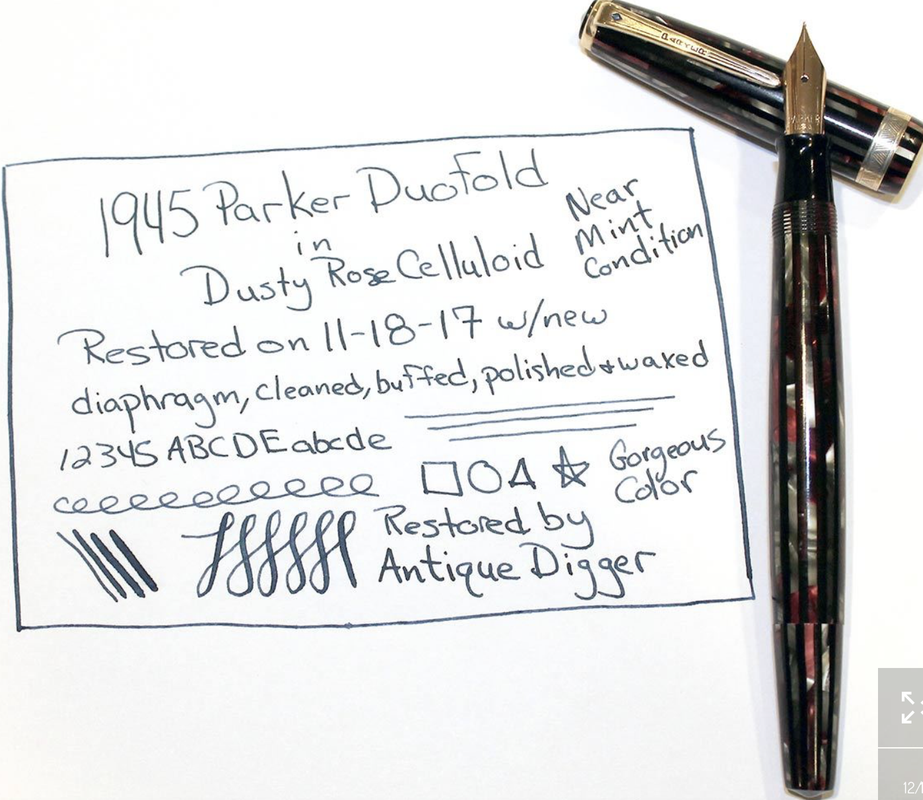 1945 Parker Duofold
in
Dusty Rose Celluloid
Near
Mint
Condition
Restored on 11-18-17 w/new
diaphragm, cleaned, buffed, polished & waxed
12345 ABCDE abcde
Gorgeous
Color
Restored by
Antique Digger
PARKER
12/